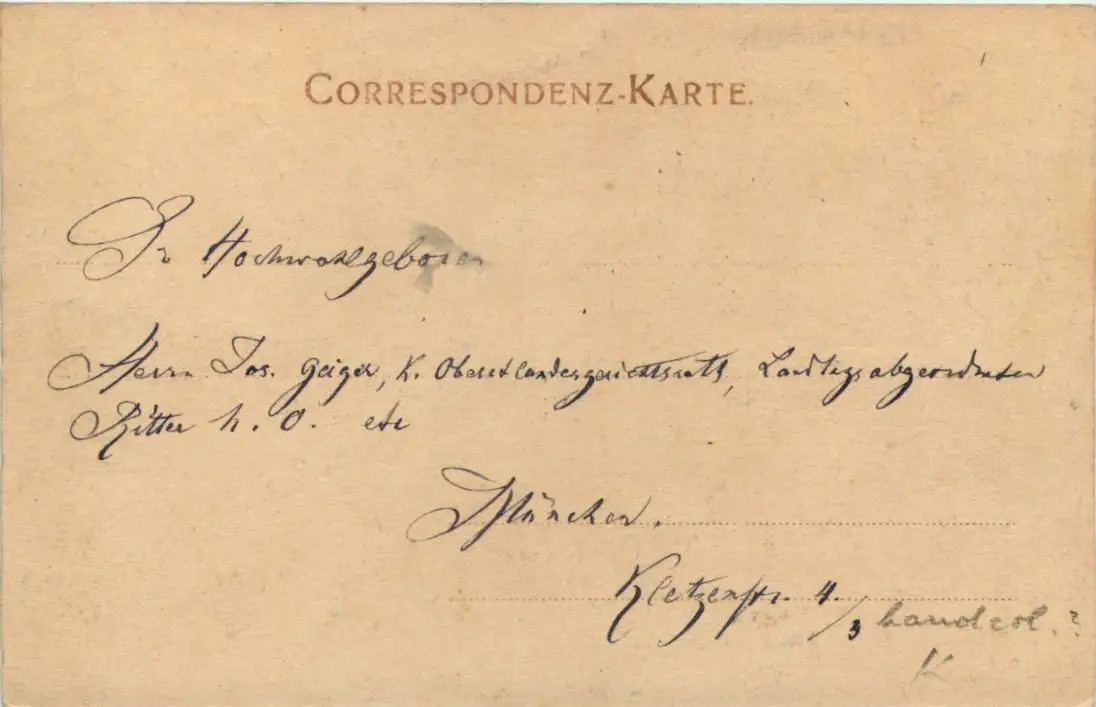 CORRESPONDENZ-KARTE.
Sr Hochwohlgeboren
Herrn Jos. Geiger, K. Oberstlandesgerichtsrath, Landtagsabgeordneter
Ritter h. O. etc
München.
Kletzenstr. 4/3 handcol.?
K